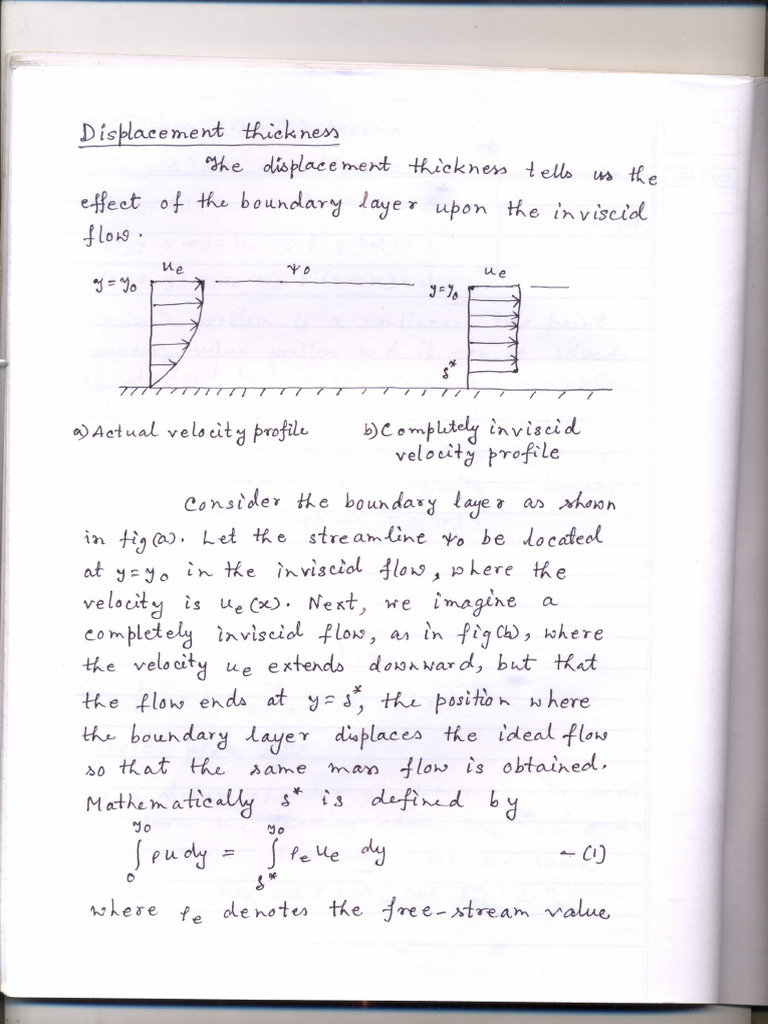 Displacement thickness
The displacement thickness tells us the
effect of the boundary layer upon the inviscid
flow.
ue ψ0 ue
y=y0 y=y0
δ*
a) Actual velocity profile b) Completely inviscid
velocity profile
Consider the boundary layer as shown
in fig(a). Let the streamline ψ0 be located
at y=y0 in the inviscid flow, where the
velocity is ue(x). Next, we imagine a
completely inviscid flow, as in fig(b), where
the velocity ue extends downward, but that
the flow ends at y=δ*, the position where
the boundary layer displaces the ideal flow
so that the same mass flow is obtained.
Mathematically δ* is defined by
∫₀^{y0} ρu dy = ∫_{δ*}^{y0} ρe ue dy –(1)
where ρe denotes the free-stream value